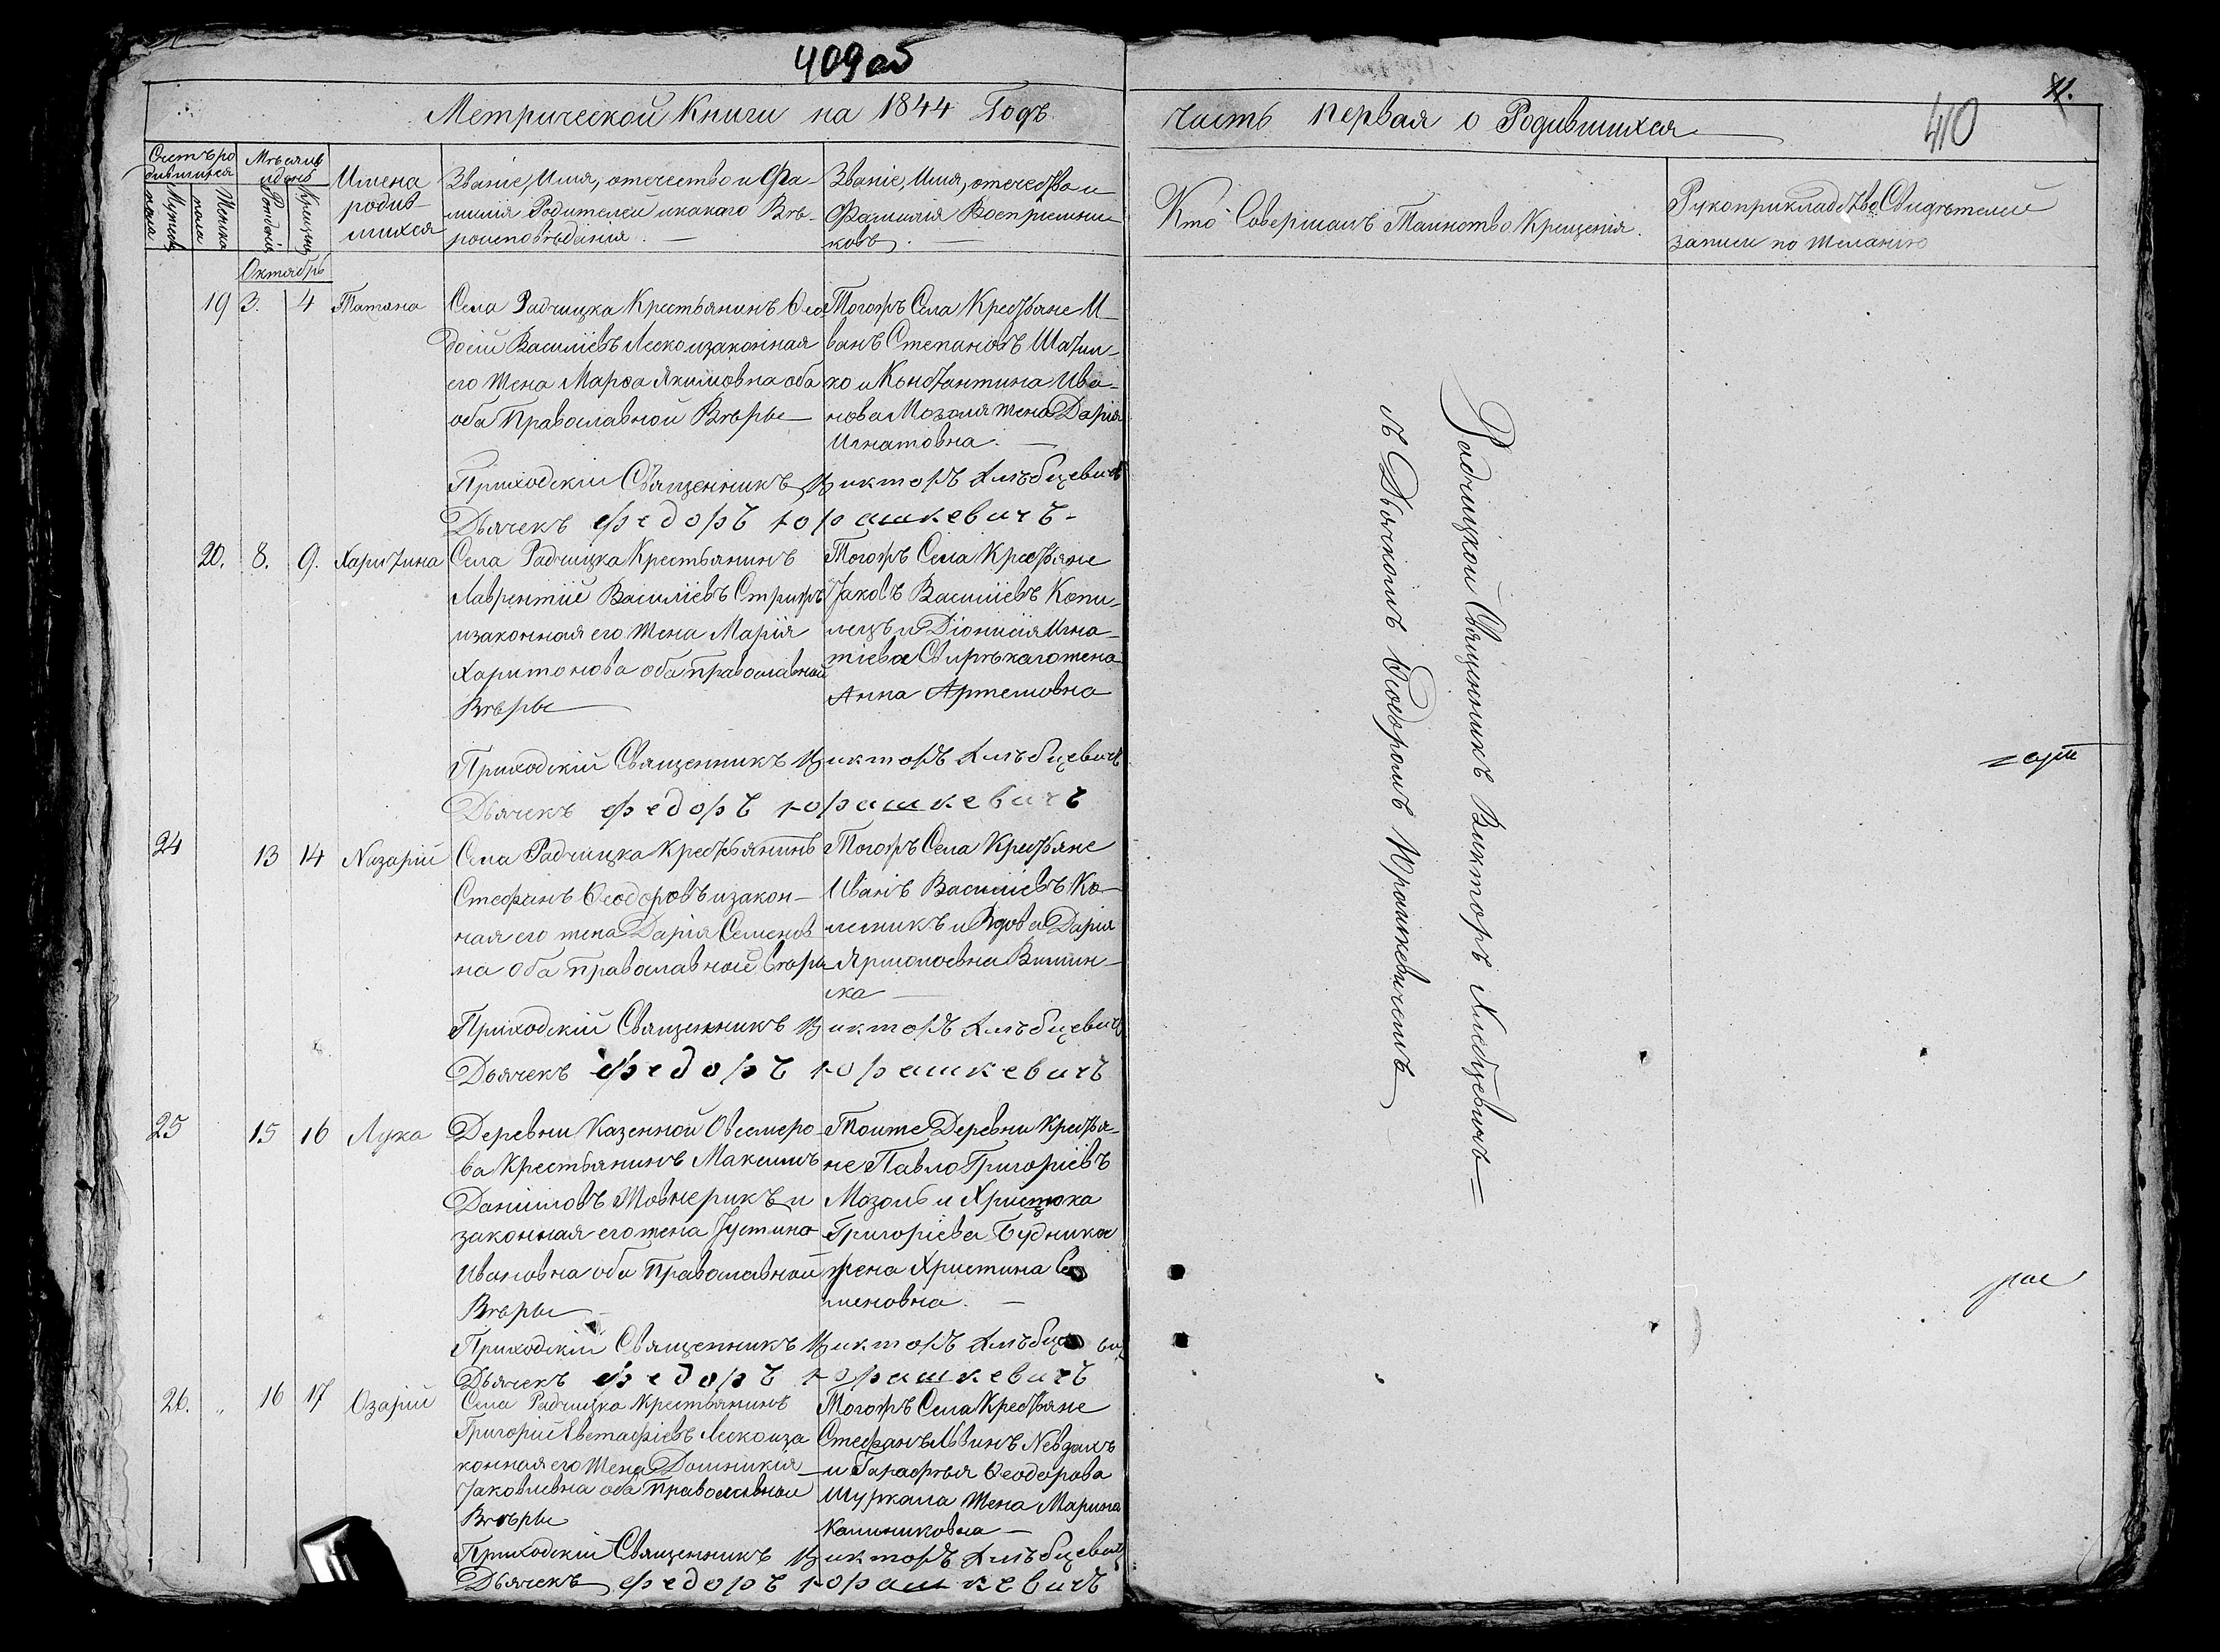 409 об
Метрической Книги на 1844 Годъ
Счетъ ро
дившихся
Мѣсяцъ
и день
Мужеска
пола
Женска
пола
Рожденія
Крещенія
Имена
родив-
шихся
Званіе, Имя, отечество и Фа-
милія Родителей и какаго Вѣ-
роисповѣданія. —
Званіе, Имя, отечество и
Фамилія Воспріемни-
ковъ. —
Октябрь
19 3. 4 Татіана
Села Радчицка Крестьянинъ Ѳео
досій Василіевъ Леско и законная
его жена Марѳа Якимовна оба
оба Православной Вѣры —
Тогожъ Села Крестьяне И-
ванъ Степановъ Шатил-
ко и Константина Ива-
нова Мозоля жена Дарія
Игнатовна. —
Приходскій Священникъ Викторъ Хлѣбцевичъ
Дьячекъ Федоръ Юрашкевичъ -
20. 8. 9. Харитина
Села Радчицка Крестьянинъ
Лаврентій Василіевъ Стрижъ
и законная его жена Марія
Харитонова оба православной
Вѣры —
Тогожъ Села Крестьяне
Іаковъ Василіевъ Копи-
лецъ и Діонисія Игна-
тіева Свирѣкаго жена
Анна Артемовна
Приходскій Священникъ Викторъ Хлѣбцевичъ
Дьячекъ Федоръ Юрашкевичъ
24 13 14 Назарій
Села Радчицка Крестьянинъ
Стефанъ Ѳеодоровъ и закон-
ная его жена Дарія Семенов
на оба православной вѣры
Тогожъ Села Крестьяне
Иванъ Василіевъ Ко-
лесникъ и Вдова Дарія
Ярмолоевна Вишин-
ска —
Приходскій Священникъ Викторъ Хлѣбцевичъ
Дьячекъ Федоръ Юрашкевичъ
25 15 16 Лука
Деревни Казенной Овсемеро-
ва Крестьянинъ Максимъ
Даниловъ Жовнерикъ и
законная его жена Іустина
Ивановна оба Православной
Вѣры —
Тоиже Деревни Крестья-
не Павло Григоріевъ
Мозоль и Христюка
Григоріева Будника
жена Христина Се
меновна. —
Приходскій Священникъ Викторъ Хлѣбцевич
Дьячекъ Федоръ Юрашкевичъ
26. „ 16 17 Озарій
Села Радчицка Крестьянинъ
Григорій Евстафіевъ Леско и за
конная его жена Домникія
Іаковлевна оба Православной
Вѣры
Тогожъ Села Крестьяне
Стефанъ Львинъ Невдахъ
и Гарафѣя Ѳеодорова
Шуркала жена Марина
Калиниковна —
Приходскій Священникъ Викторъ Хлѣбцевич
Дьячекъ Федоръ Юрашкевичъ
часть первая о Родившихся
410
Кто Совершалъ Таинство Крещенія.
Рукоприкладство Свидѣтелей
записи по желанію
Радчицкой Священникъ Викторъ Хлебцевичъ =
съ Дьячкомъ Ѳеодоромъ Юрашкевичемъ